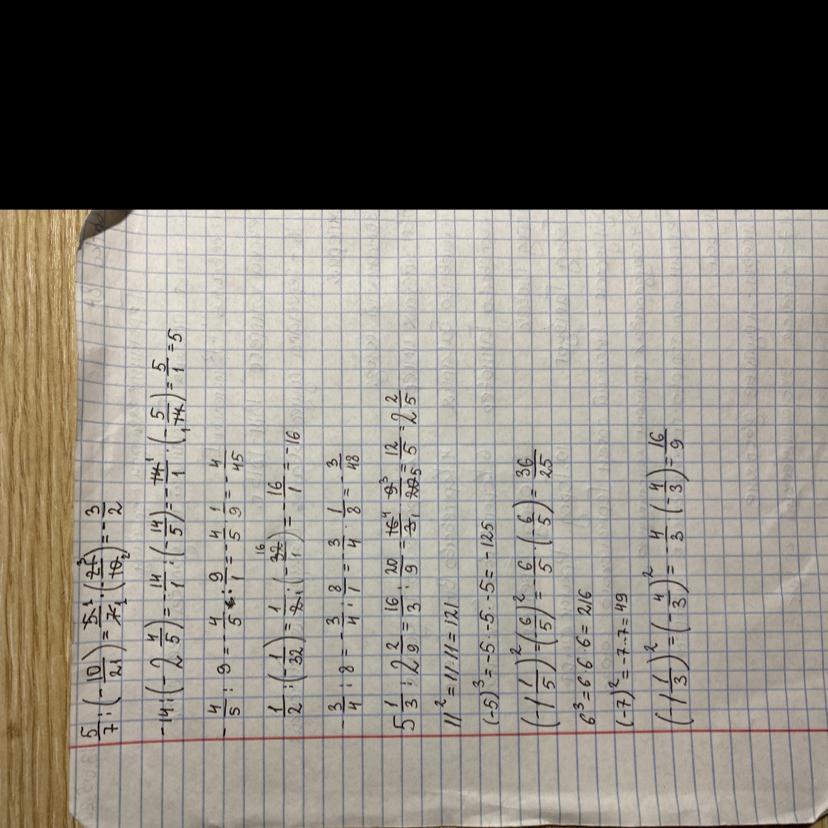 5/7 : (-10/21) = 5¹/7₁ · (21³/10₂) = -3/2
-14 : (-2 4/5) = -14/1 : (-14/5) = -14¹/1 · (-5/₁14) = 5/1 = 5
-4/5 : 9 = -4/5 : 9/1 = -4/5 · 1/9 = -4/45
1/2 : (-1/32) = 1/2₁ · (-32¹⁶/1) = -16/1 = -16
-3/4 : 8 = -3/4 : 8/1 = -3/4 · 1/8 = -3/48
5 1/3 : 2 2/9 = 16/3 : 20/9 = 16⁴/3₁ · 9³/20₅ = 12/5 = 2 2/5
11² = 11·11 = 121
(-5)³ = -5·-5·-5 = -125
(-1 1/5)² = (6/5)² = -6/5 · (-6/5) = 36/25
6³ = 6·6·6 = 216
(-7)² = -7·7 = 49
(-1 1/3)² = (-4/3)² = -4/3 (-4/3) = 16/9